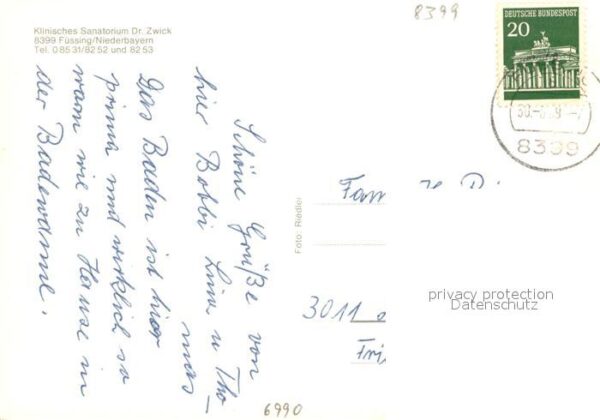 8399
Klinisches Sanatorium Dr. Zwick
8399 Füssing/Niederbayern
Tel. 0 85 31/82 52 und 82 53
DEUTSCHE BUNDESPOST
20
8399
Schöne Grüße von
hier Bobbi Lina u Tho-
mas
Das Baden ist hier
prima und wirklich so
warm wie zu Hause in
der Badewanne.
Foto: Riedler
Fam
D.
3011
privacy protection
Datenschutz
6990